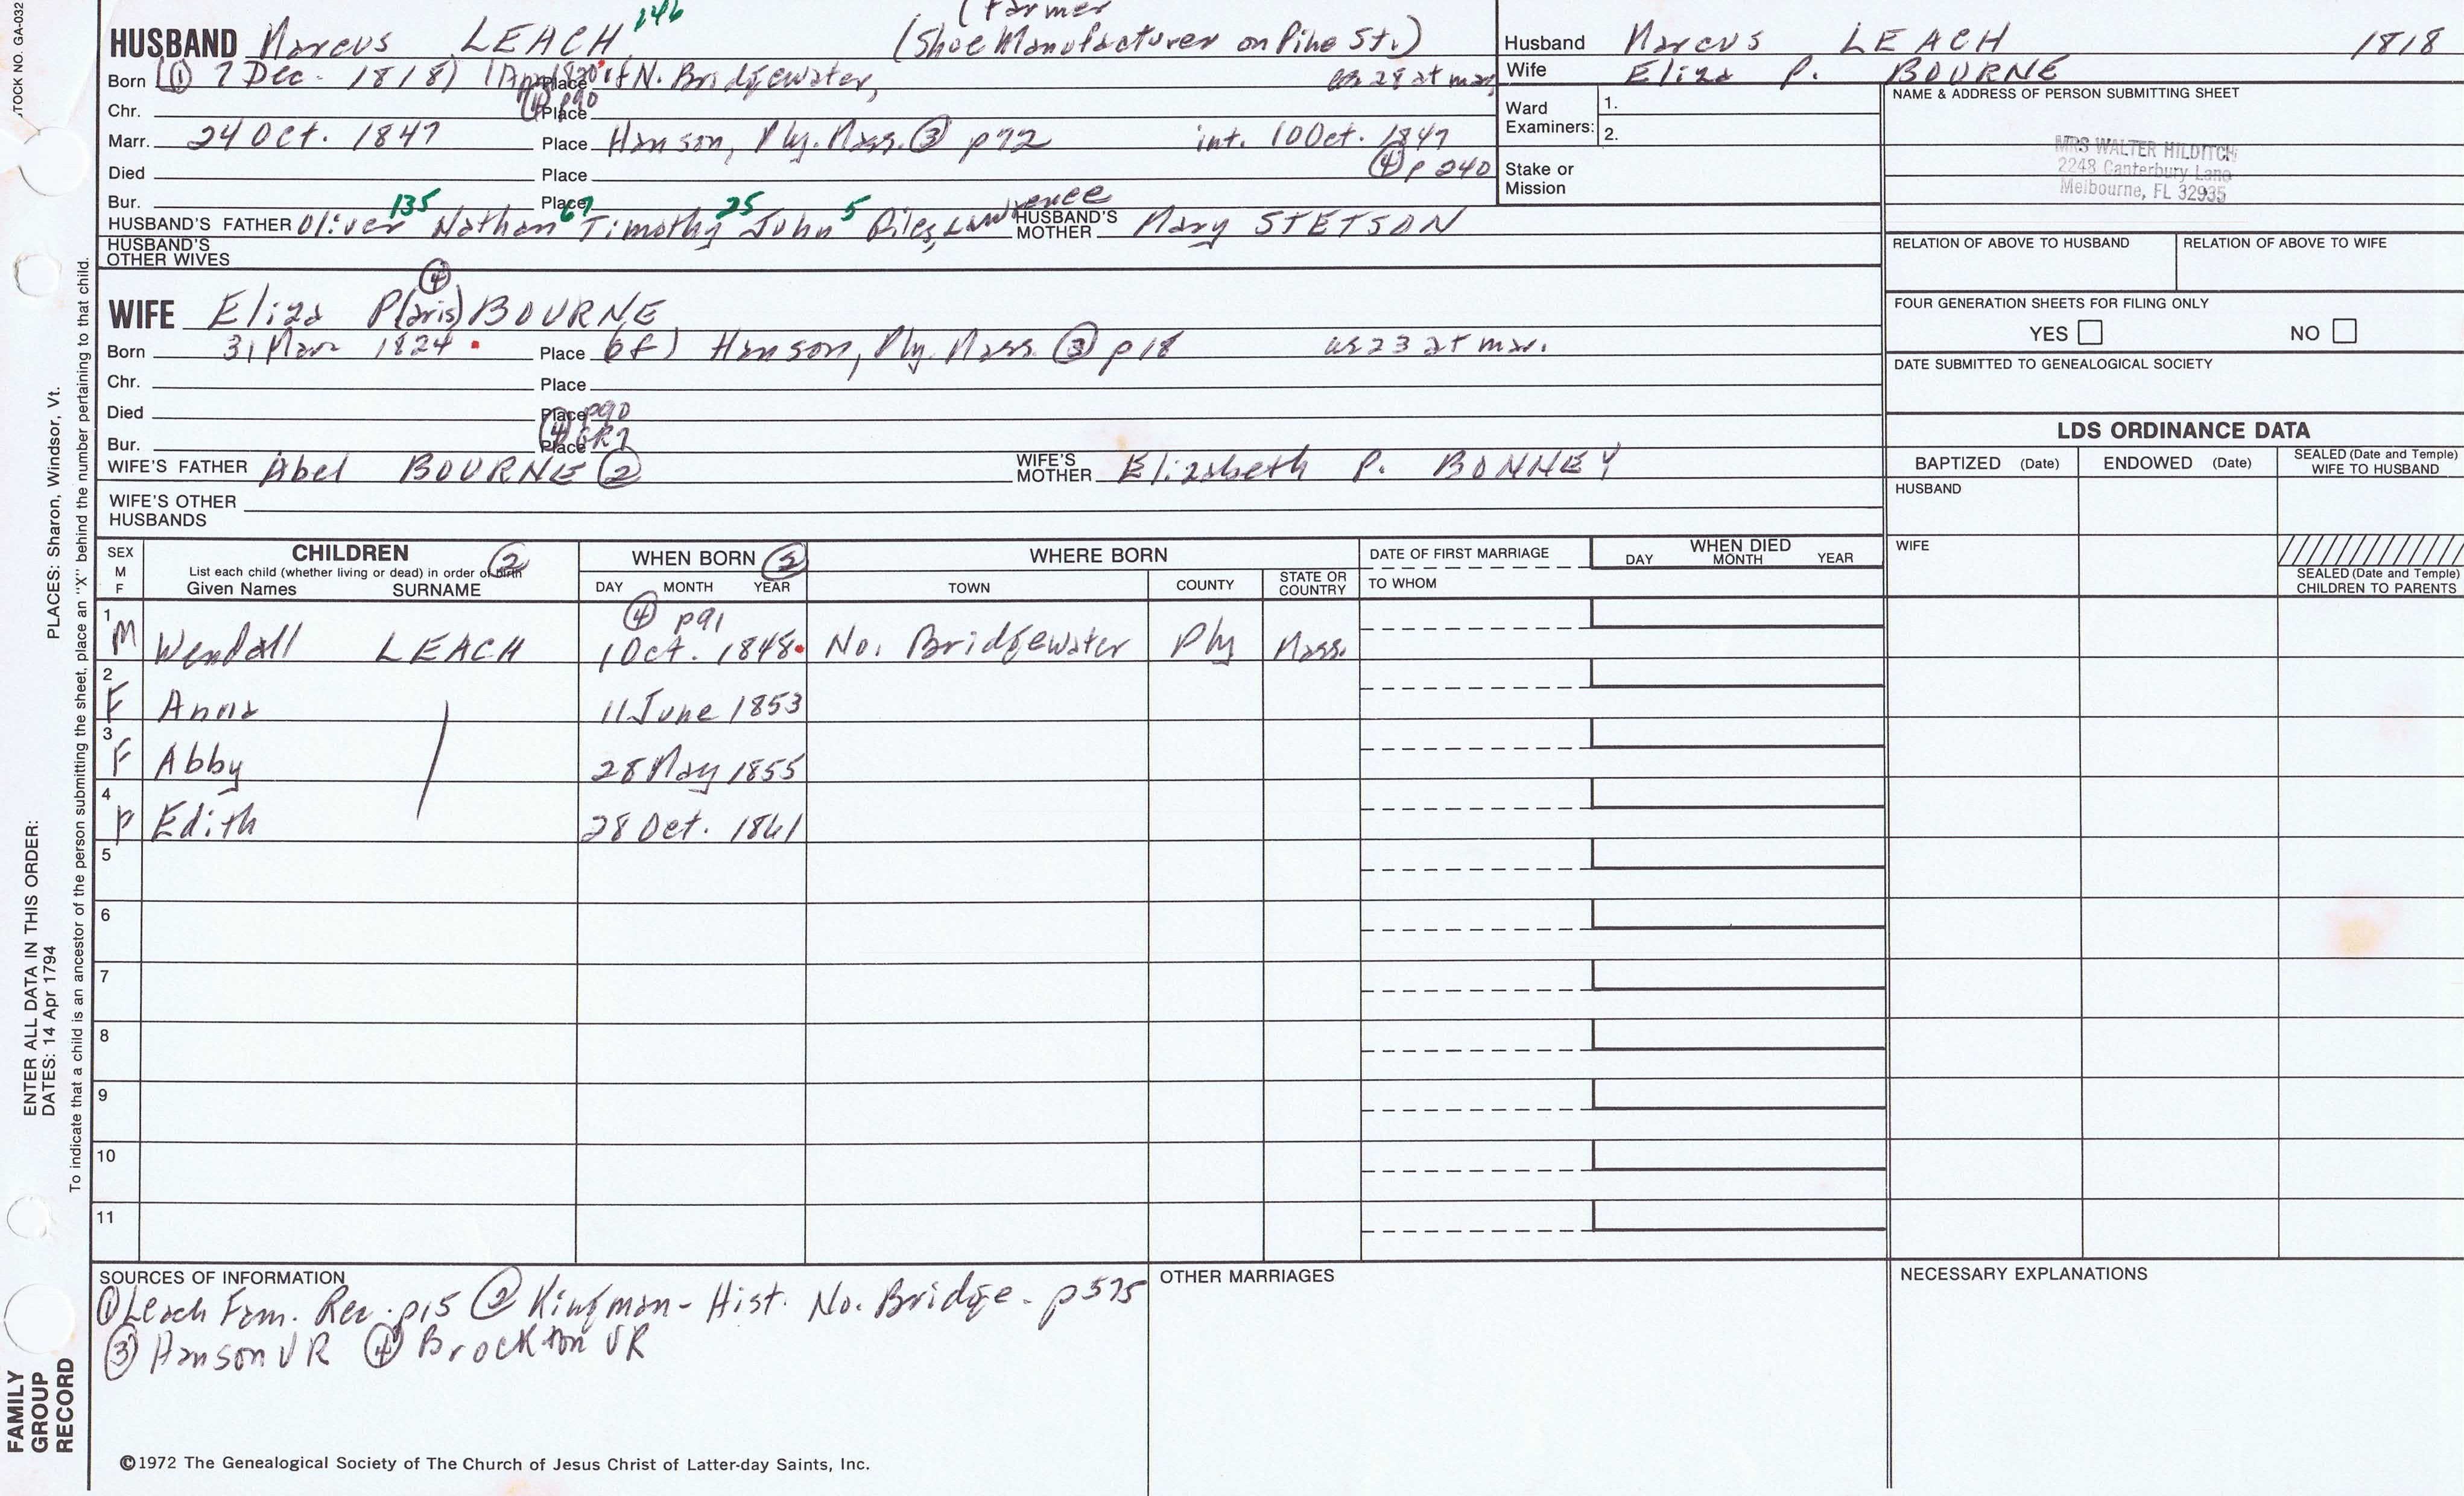 STOCK NO. GA-032
146
(Farmer
HUSBAND Marcus LEACH (Shoe Manufacturer on Pike St.)
Born (① 7 Dec. 1818) Place of N. Bridgewater, as 28 at mar
④ p90
Chr. Place
Marr. 24 Oct. 1847 Place Hanson, Ply. Mass. ③ p72 int. 10 Oct. 1847
④ p 240
Died Place
Bur. Place
135 67 25 5
HUSBAND'S FATHER Oliver Nathan Timothy John Giles, Lawrence HUSBAND'S MOTHER Mary STETSON
HUSBAND'S OTHER WIVES
④
WIFE Eliza P(aris) BOURNE
Born 31 Mar 1824 Place (of) Hanson, Ply. Mass. ③ p18 as 23 at mar.
Chr. Place
Died Place p90
Bur. Place ④ GR7
WIFE'S FATHER Abel BOURNE ② WIFE'S MOTHER Elizabeth P. BONNEY
WIFE'S OTHER HUSBANDS
Husband Marcus LEACH 1818
Wife Eliza P. BOURNE
Ward Examiners: 1.
2.
Stake or Mission
NAME & ADDRESS OF PERSON SUBMITTING SHEET
MRS WALTER HILDITCH
2248 Canterbury Lane
Melbourne, FL 32935
RELATION OF ABOVE TO HUSBAND RELATION OF ABOVE TO WIFE
FOUR GENERATION SHEETS FOR FILING ONLY
YES NO
DATE SUBMITTED TO GENEALOGICAL SOCIETY
LDS ORDINANCE DATA
BAPTIZED (Date) ENDOWED (Date) SEALED (Date and Temple) WIFE TO HUSBAND
HUSBAND
WIFE
SEALED (Date and Temple) CHILDREN TO PARENTS
SEX M F CHILDREN ② WHEN BORN ② WHERE BORN DATE OF FIRST MARRIAGE WHEN DIED
List each child (whether living or dead) in order of birth DAY MONTH YEAR
Given Names SURNAME DAY MONTH YEAR TOWN COUNTY STATE OR COUNTRY TO WHOM
④ p91
1 M Wendall LEACH 1 Oct. 1848 No. Bridgewater Ply Mass.
2 F Anna 11 June 1853
3 F Abby 28 May 1855
4 F Edith 28 Oct. 1861
5
6
7
8
9
10
11
SOURCES OF INFORMATION
① Leach Fam. Rec. p15 ② Kingman - Hist. No. Bridge. p575
③ Hanson VR ④ Brockton VR
OTHER MARRIAGES
NECESSARY EXPLANATIONS
©1972 The Genealogical Society of The Church of Jesus Christ of Latter-day Saints, Inc.
FAMILY GROUP RECORD
ENTER ALL DATA IN THIS ORDER:
DATES: 14 Apr 1794
PLACES: Sharon, Windsor, Vt.
To indicate that a child is an ancestor of the person submitting the sheet, place an "X" behind the number pertaining to that child.